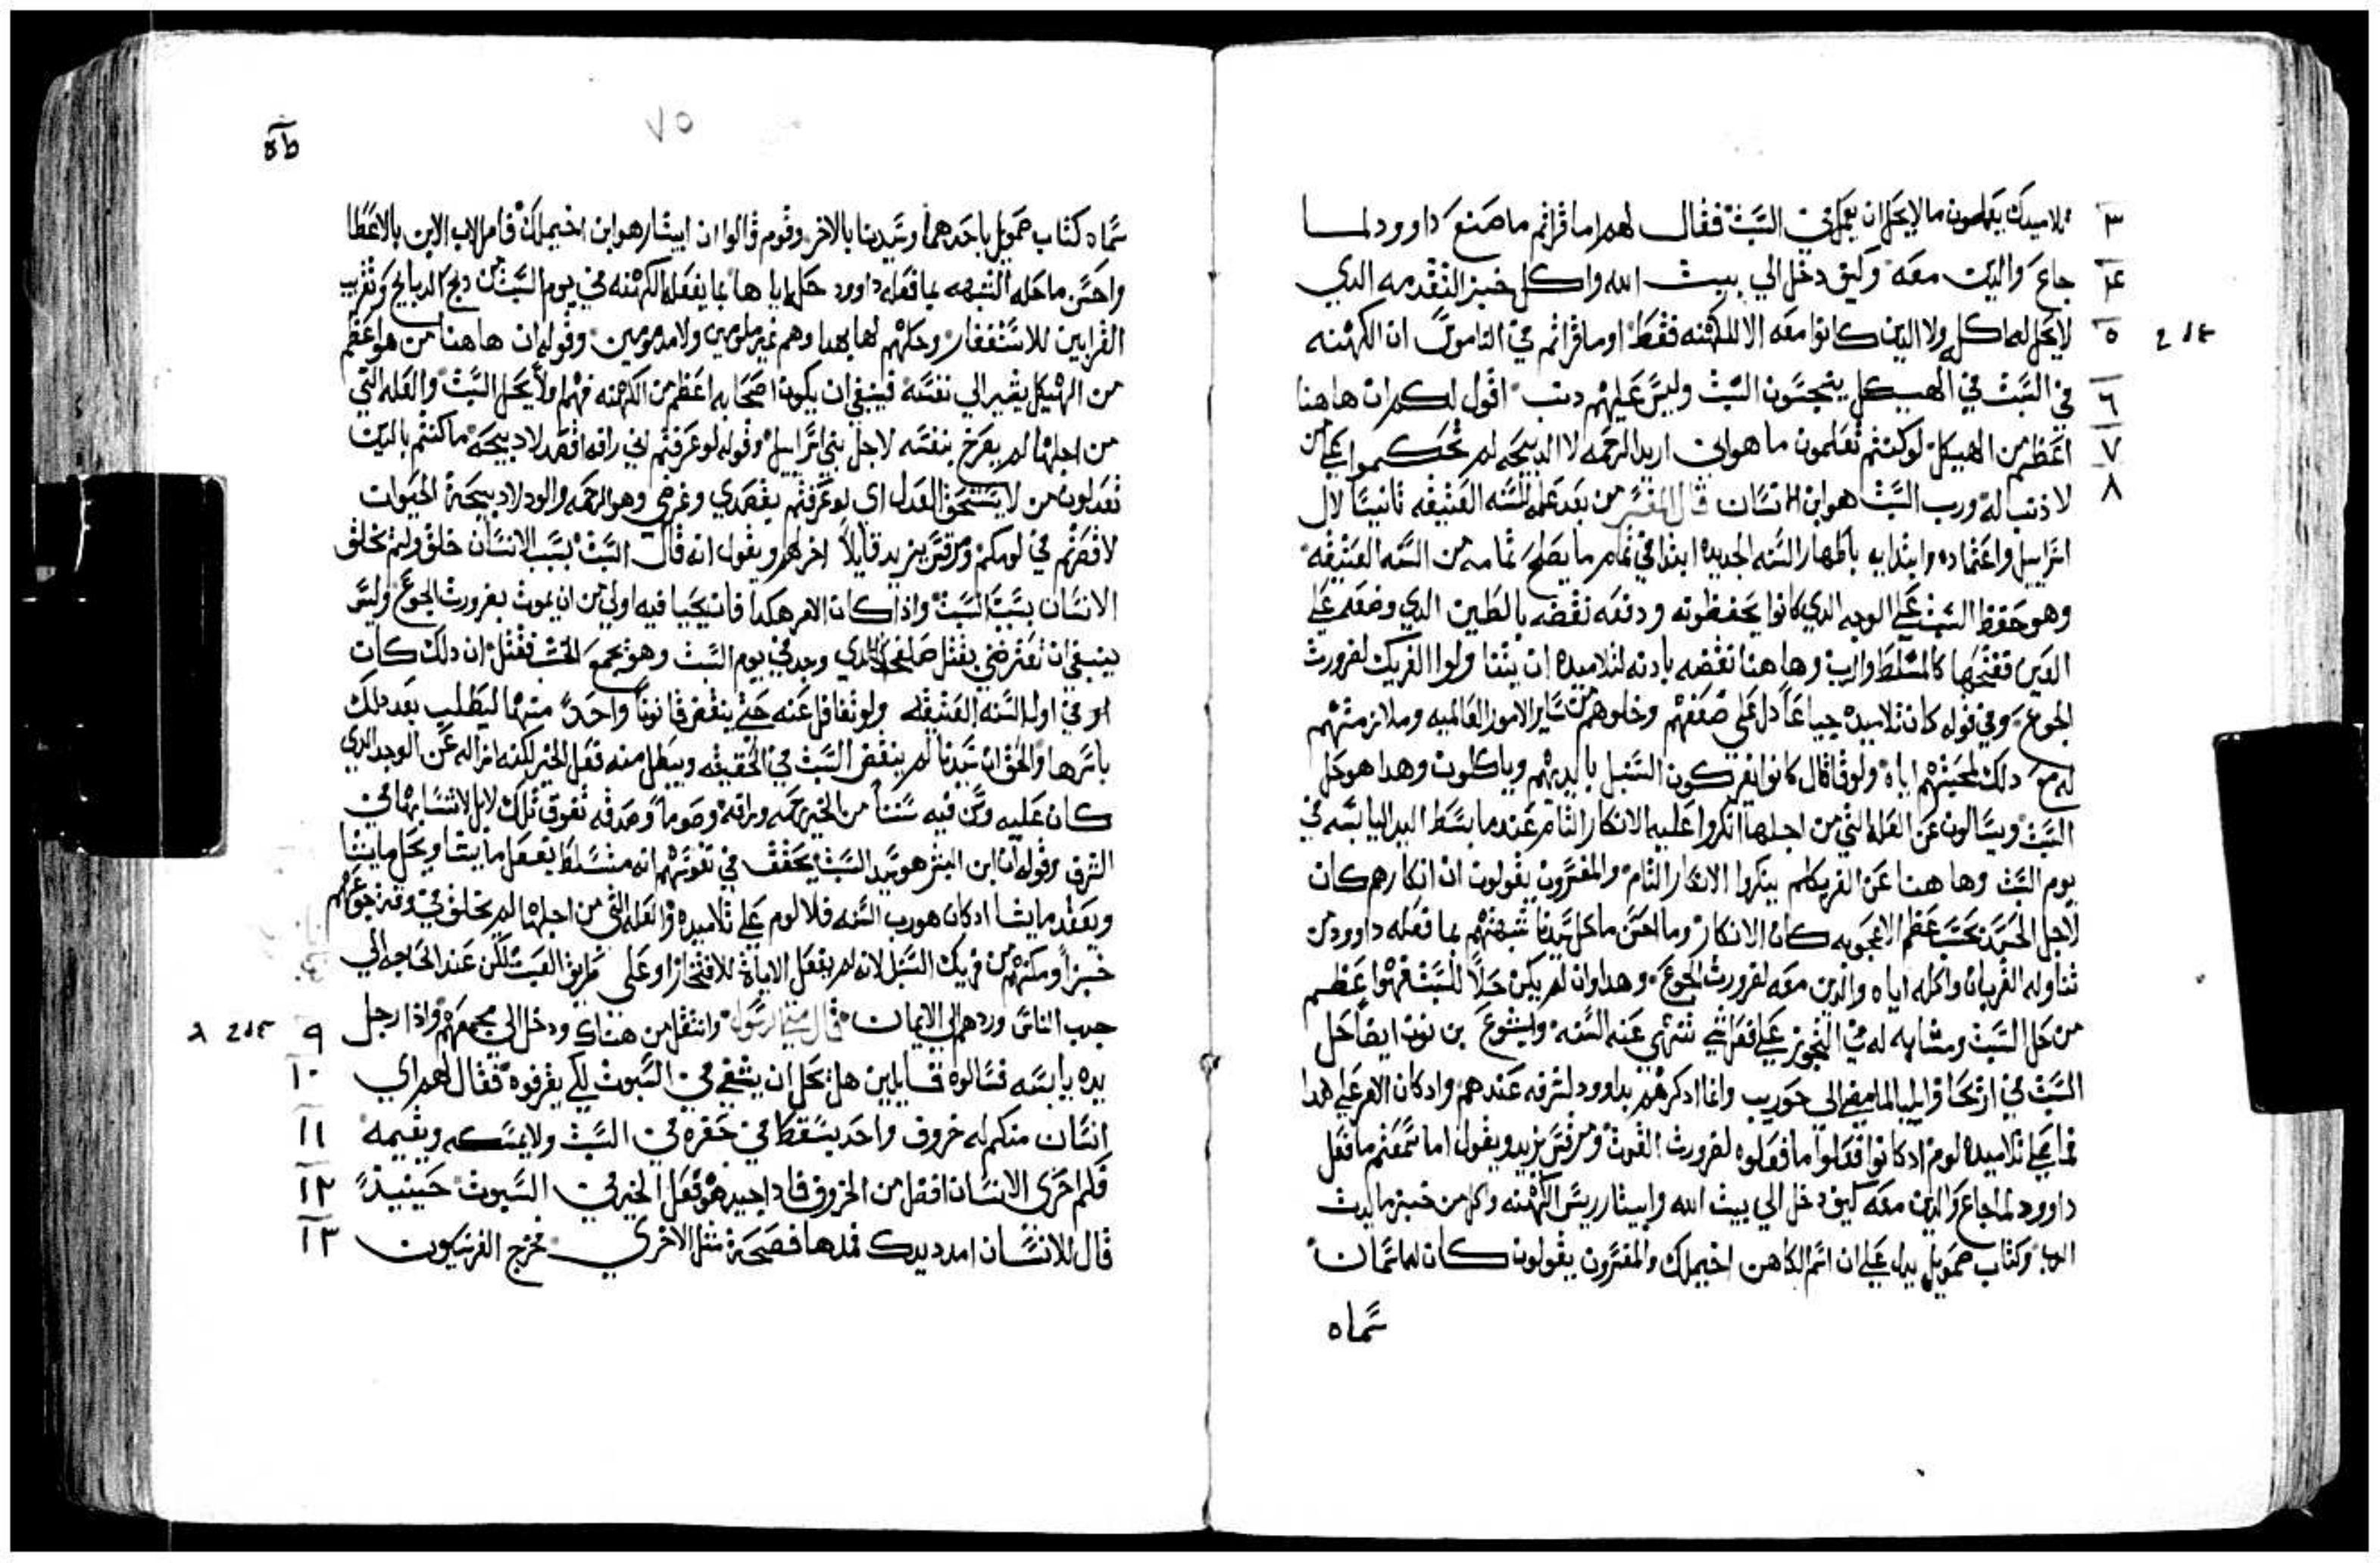 تلاميدك يعملون ما لا يحل ان يعمل في السبت فقال لهم اما قراتم ما صنع داوود لما
جاع والدين معه وكيف دخل الي بيت الله واكل خبز التقدمه الدي
لا يحل له اكله ولا الدين كانوا معه الا للكهنه فقط او ما قراتم في الناموس ان الكهنه
في السبت في الهيكل ينجسون السبت وليس عليهم دنب اقول لكم ان هاهنا
اعظم من الهيكل لو كنتم تعلمون ما هو اني اريد الرحمه لا الدبيحه لم تحكموا علي من
لا ذنب له ورب السبت هو ابن الانسان قال المفسر من بعد عمله للسنه العتيقه تانيسا لال
اسراييل واعتماده وابتدايه باظهار السنه الجديده ابتدا في تمام ما يصلح تمامه من السنه العتيقه
وهو حفظ السبت علي الوجه الدي كانوا يحفظونه ودفعه نقضه بالطين الدي وضعه علي
العين ففتحها كالمتسلط وهاهنا نقضه بادنه لتلاميده ان يتناولوا الفريك لضرورت
الجوع وفي قوله كان تلاميده جياعا دل علي ضعفهم وخلوهم من ساير الامور العالميه وملازمتهم
له مع دلك لمحبتهم اياه ولوقا قال كانوا يفركون السنبل بايديهم وياكلون وهدا هو حل
السبت ويسالون عن العله التي من اجلها انكروا عليه الانكار التام عندما بسط اليد اليابسه في
يوم السبت وهاهنا عن الفريك لم ينكروا الانكار التام والمفسرون يقولون ان انكارهم كان
لاجل الحسد بحسب عظم الاعجوبه كان الانكار وما احسن ما حل سيدنا شبهتهم بما فعله داوود من
تناوله القربان واكله اياه والدين معه لضرورت الجوع وهدا وان لم يكن حلا للسبت فهو اعظم
من حل السبت ومشابه له في التجوز علي فعل شي تنهي عنه السنه وايشوع بن نون ايضا حل
السبت في اريحا وايليا لما مضي الي حوريب وانما ادكرهم بداوود لشرفه عندهم وادكان الامر علي هدا
فما علي تلاميده لوم ادكانوا فعلوا ما فعلوه لضرورت القوت ومرقس يزيد ويقول اما سمعتم ما فعل
داوود لما جاع والدين معه كيف دخل الي بيت الله وابيتار رييس الكهنه واكل من خبز مايدت
الرب وكتاب صمويل يدل علي ان اسم الكاهن اخيملك والمفسرون يقولون كان له اسمان
سماه
٣
٤
٥
٦
٧
٨
٧٥
سماه كتاب صمويل باحدهما وسيدنا بالاخر وقوم قالوا ان ابيتار هو ابن اخيملك فامر الاب الابن بالاعطا
واحسن ما حله الشبهه بما فعله داوود حله اياها بما يفعله الكهنه في يوم السبت من دبح الدبايح وتقريب
القرابين للاستغفار وحلهم لها بهدا وهم غير ملومين ولا مدمومين وقوله ان هاهنا من هو اعظم
من الهيكل يشير الي نفسه فينبغي ان يكون اصحابه اعظم من الكهنه فهم اولا يحل السبت والعله التي
من اجلها لم يصرح بنفسه لاجل بني اسراييل وقوله لو عرفتم اني رافه اقصد لا دبيحه ما كنتم بالدين
تعدلون من لا يستحق العدل اي لو عرفتم بقصدي وغرضي وهو الرحمه والود لا دبيحة الحيوان
لاقصرتم في لومكم ومرقس يزيد قايلا اخر لهم ويقول انه قال السبت بسبب الانسان خلق ولم يخلق
الانسان بسبب السبت واذا كان الامر هكدا فان يحيا فيه اولي من ان يموت بضرورت الجوع وليس
ينبغي ان نعترضني بقتل الدي وجد في يوم السبت وهو يجمع الخشب فقتل ان دلك كان
في اول السنه العتيقه ولو تغافل عنه حتي ينقض قانونا واحدا منهما ليطلب بعد دلك
باسرها والحق ان سيدنا لم ينقض السبت في الحقيقه ويبطل منه فعل الخير لكنه ازاله عن الوجه الدي
كان عليه وسن فيه سننا من الخير رحمه ورافه وصوما وصدقه تفوق تلك لا بل لا تتشابهها في
الشرف وقوله ان ابن البشر هو سيد السبت يحقق في نفوسهم انه متسلط يفعل ما يشا ويحل ما يشا
ويعقد ما يشا ادكان هو رب السنه فلا لوم علي تلاميده والعله التي من اجلها لم يخلق في وقت جوعهم
خبزا ومكنهم من فريك السنبل لانه لم يفعل الاياة للافتخار او علي طريق العبث لكن عند الحاجه الي
جدب الناس وردهم الي الايمان قال متي الرسول وانتقل من هناك ودخل الي مجمعهم واذا رجل
يده يابسه فسالوه قايلين هل يحل ان يشفي في السبوت لكي يقرفوه فقال لهم اي
انسان منكم له خروف واحد يسقط في حفره في السبت ولا يمسكه ويقيمه
فكم حري الانسان افضل من الخروف فاذا جيد هو فعل الخير في السبوت حينيذ
قال للانسان امدد يدك فمدها فصحة مثل الاخري فخرج الفرنيسيون
٩
١٠
١١
١٢
١٣